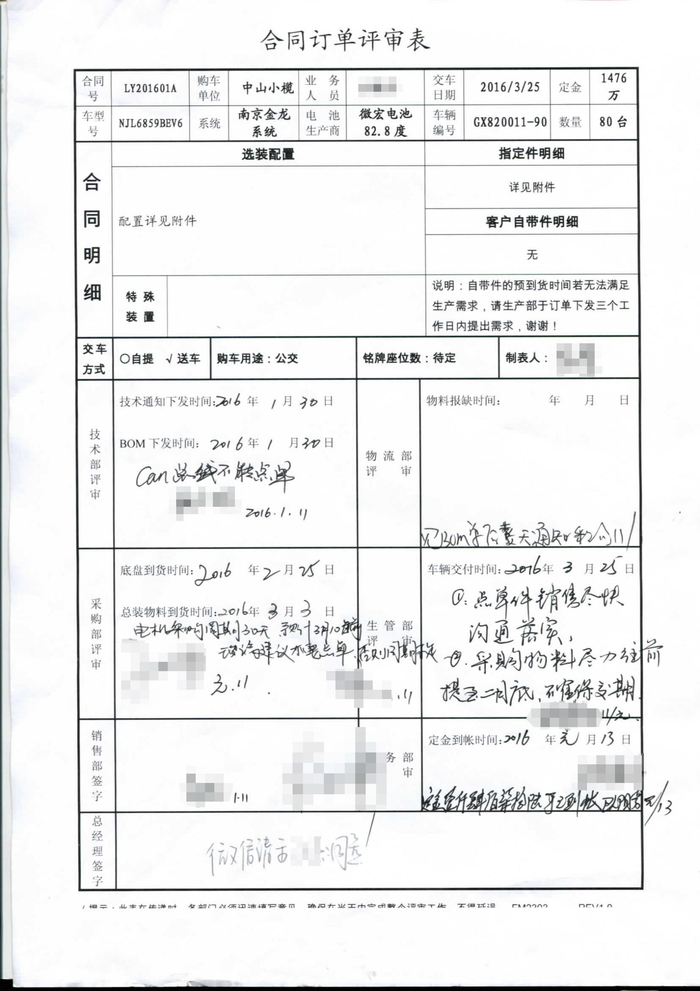 合同订单评审表
合同号 LY201601A 购车单位 中山小榄 业务人员 交车日期 2016/3/25 定金 1476万
车型号 NJL6859BEV6 系统 南京金龙系统 电池生产商 微宏电池82.8度 车辆编号 GX820011-90 数量 80台
合同明细
选装配置 指定件明细
配置详见附件 详见附件
客户自带件明细
无
特殊装置
说明：自带件的预到货时间若无法满足
生产需求，请生产部于订单下发三个工
作日内提出需求，谢谢！
交车方式 ○自提 √送车 购车用途：公交 铭牌座位数：待定 制表人：
技术部评审
技术通知下发时间:2016 年 1 月 30 日
BOM 下发时间: 2016 年 1 月 30 日
Can总线不能点单
2016.1.11
物流部评审
物料报缺时间: 年 月 日
采购部评审
底盘到货时间: 2016 年 2 月 25 日
总装物料到货时间:2016 年 3 月 3 日
电机采购周期30天
元.11
生管部评审
车辆交付时间:2016 年 3 月 25 日
①.点单件销售尽快
沟通落实,
②.采购物料尽力往前
提至二月底,不确保交期.
销售部签字
1.11
务部审
定金到帐时间:2016 年 元 月 13 日
总经理签字
微信请示